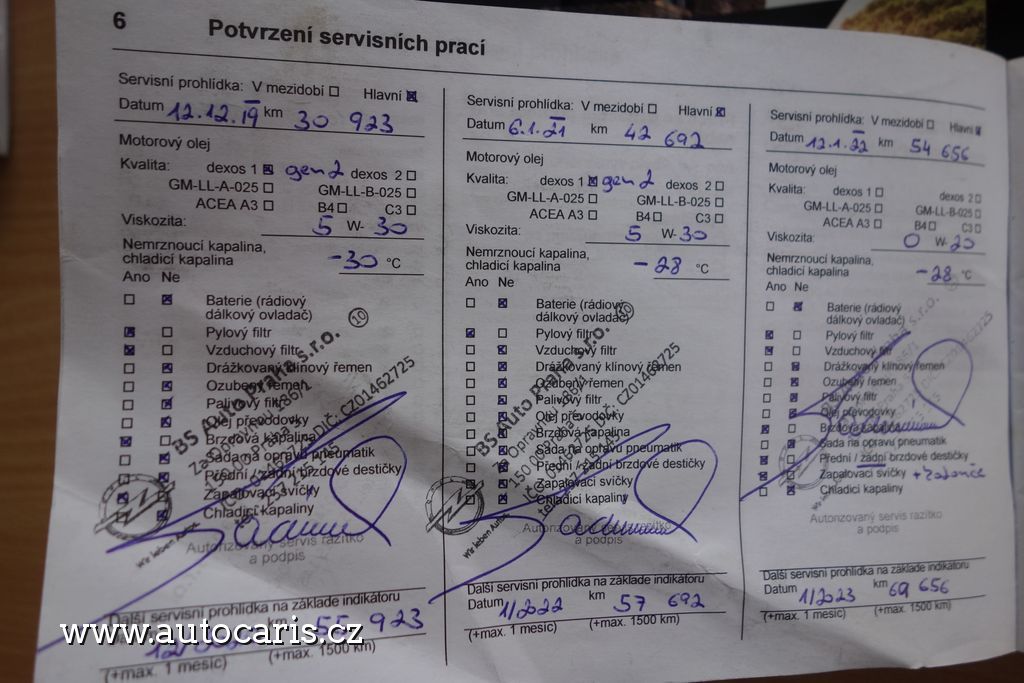 6
Potvrzení servisních prací
Servisní prohlídka: V mezidobí Hlavní
Datum 12.12.19 km 30 923
Motorový olej
Kvalita: dexos 1 gen2 dexos 2
GM-LL-A-025 GM-LL-B-025
ACEA A3 B4 C3
Viskozita: 5 W- 30
Nemrznoucí kapalina,
chladicí kapalina -30 °C
Ano Ne
Baterie (rádiový
dálkový ovladač)
Pylový filtr
Vzduchový filtr
Drážkovaný klínový řemen
Ozubený řemen
Palivový filtr
Olej převodovky
Brzdová kapalina
Sada na opravu pneumatik
Přední / zadní brzdové destičky
Zapalovací svíčky
Chladicí kapaliny
BS Auto Praha s.r.o. 10
DIČ: CZ01462725
Wir leben Autos.
Autorizovaný servis razítko
a podpis
Další servisní prohlídka na základě indikátoru
km 55 923
(+max. 1 měsíc) (+max. 1500 km)
Servisní prohlídka: V mezidobí Hlavní
Datum 6.1.21 km 42 692
Motorový olej
Kvalita: dexos 1 gen2 dexos 2
GM-LL-A-025 GM-LL-B-025
ACEA A3 B4 C3
Viskozita: 5 W- 30
Nemrznoucí kapalina,
chladicí kapalina -28 °C
Ano Ne
Baterie (rádiový
dálkový ovladač)
Pylový filtr
Vzduchový filtr
Drážkovaný klínový řemen
Ozubený řemen
Palivový filtr
Olej převodovky
Brzdová kapalina
Sada na opravu pneumatik
Přední / zadní brzdové destičky
Zapalovací svíčky
Chladicí kapaliny
BS Auto Praha s.r.o. 10
DIČ: CZ01462725
Wir leben Autos.
Autorizovaný servis razítko
a podpis
Další servisní prohlídka na základě indikátoru
Datum 1/2022 km 57 692
(+max. 1 měsíc) (+max. 1500 km)
Servisní prohlídka: V mezidobí Hlavní
Datum 12.1.22 km 54 656
Motorový olej
Kvalita: dexos 1 dexos 2
GM-LL-A-025 GM-LL-B-025
ACEA A3 B4 C3
Viskozita: 0 W- 20
Nemrznoucí kapalina,
chladicí kapalina -28 °C
Ano Ne
Baterie (rádiový
dálkový ovladač)
Pylový filtr
Vzduchový filtr
Drážkovaný klínový řemen
Ozubený řemen
Palivový filtr
Olej převodovky
Brzdová kapalina
Sada na opravu pneumatik
Přední / zadní brzdové destičky
Zapalovací svíčky
Chladicí kapaliny
Autorizovaný servis razítko
a podpis
Další servisní prohlídka na základě indikátoru
Datum 1/2023 km 69 656
(+max. 1 měsíc) (+max. 1500 km)
www.autocaris.cz